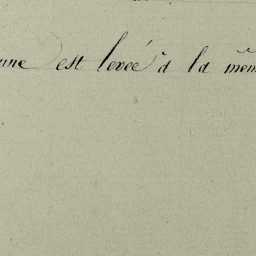 une est levée à la mêm